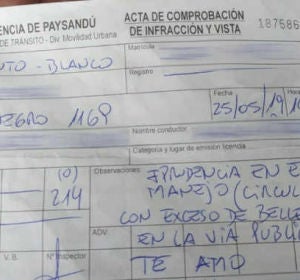 ENCIA DE PAYSANDÚ
DE TRÁNSITO - Div. Movilidad Urbana
ACTA DE COMPROBACIÓN
DE INFRACCIÓN Y VISTA
Matrícula
BLANCO
Registro
Fecha
25/05/19
Hora
NEGRO 1169
Nombre conductor
Categoría y lugar de emisión licencia
(0)
214
Observaciones:
EN E
MANEJO (CIRCUL
CON EXCESO DE BELLE
EN LA VIA PUBLI
ADV.
TE AMO
V. B.
Nº Inspector